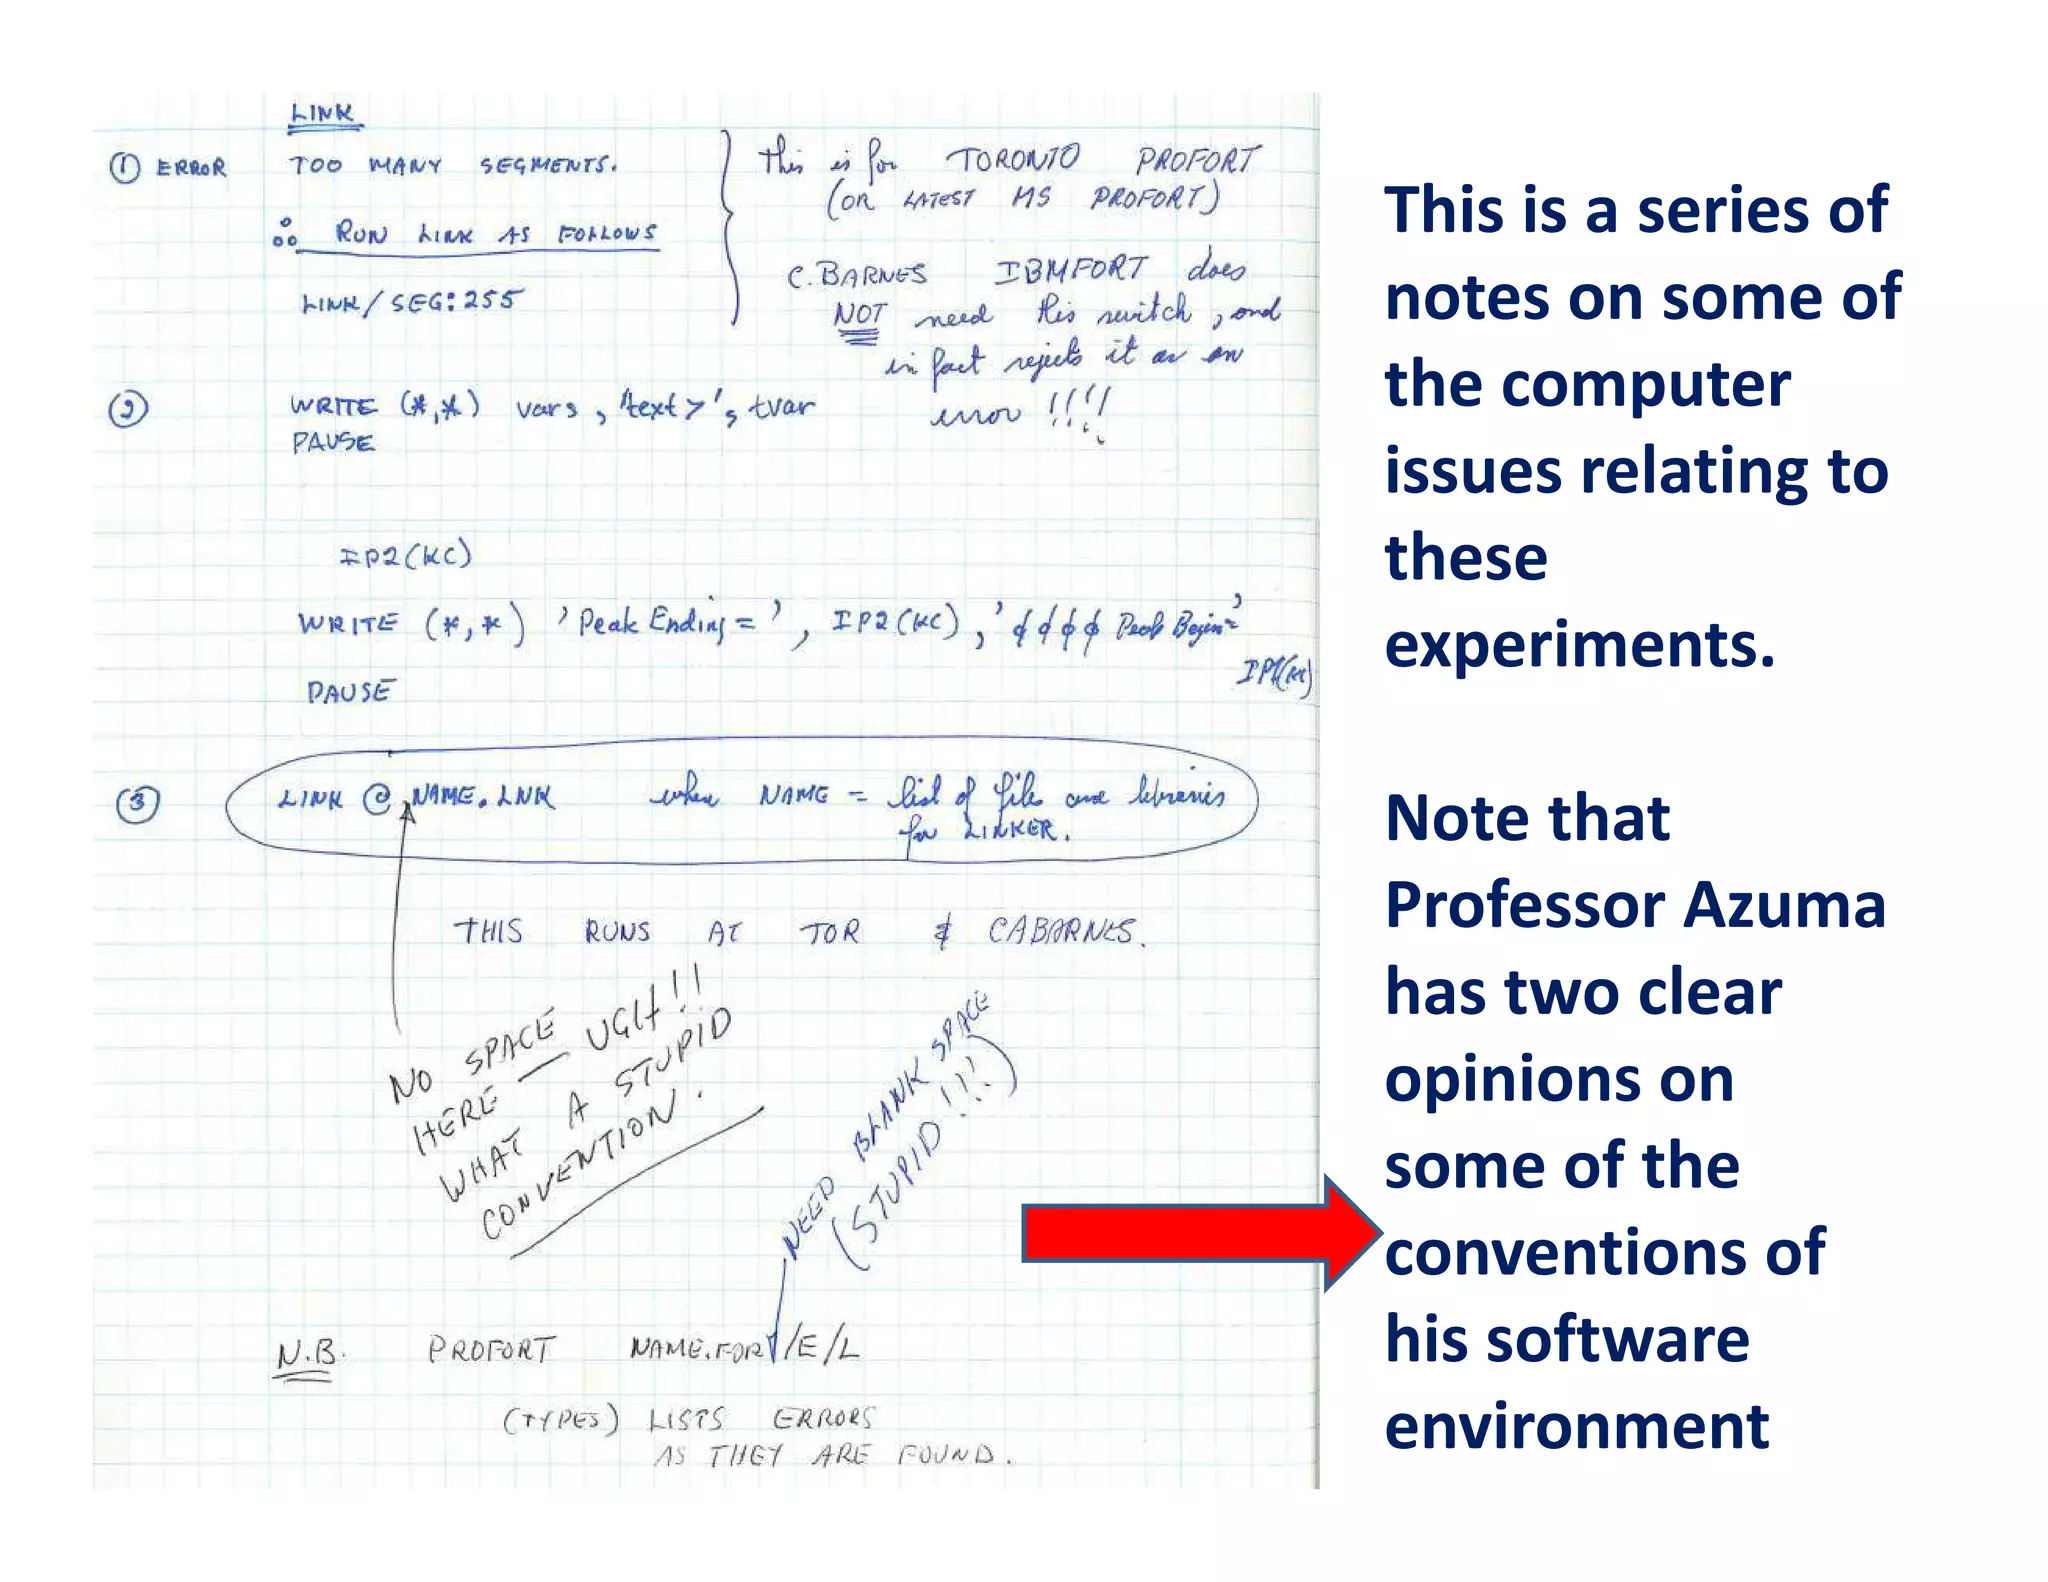 LINK
① ERROR TOO MANY SEGMENTS.
∴ RUN LINK AS FOLLOWS
LINK/SEG:255
This is for TORONTO PROFORT
(OR LATEST MS PROFORT)
C. BARNES IBMFORT does
NOT need this switch, and
in fact rejects it as an
error !!!!
② WRITE (*,*) vars, 'text>', tvar
PAUSE
IP2(KC)
WRITE (*,*) 'Peak Ending=', IP2(KC), ' Peak Begin='
PAUSE
③ LINK @NAME.LNK where NAME = list of files and libraries
for LINKER.
THIS RUNS AT TOR & CABARNES.
NO SPACE UGH!!
HERE — WHAT A STUPID
CONVENTION.
NEED BLANK SPACE
(STUPID!!!)
N.B. PROFORT NAME.FOR /E/L
(TYPES) LISTS ERRORS
AS THEY ARE FOUND.
This is a series of
notes on some of
the computer
issues relating to
these
experiments.
Note that
Professor Azuma
has two clear
opinions on
some of the
conventions of
his software
environment